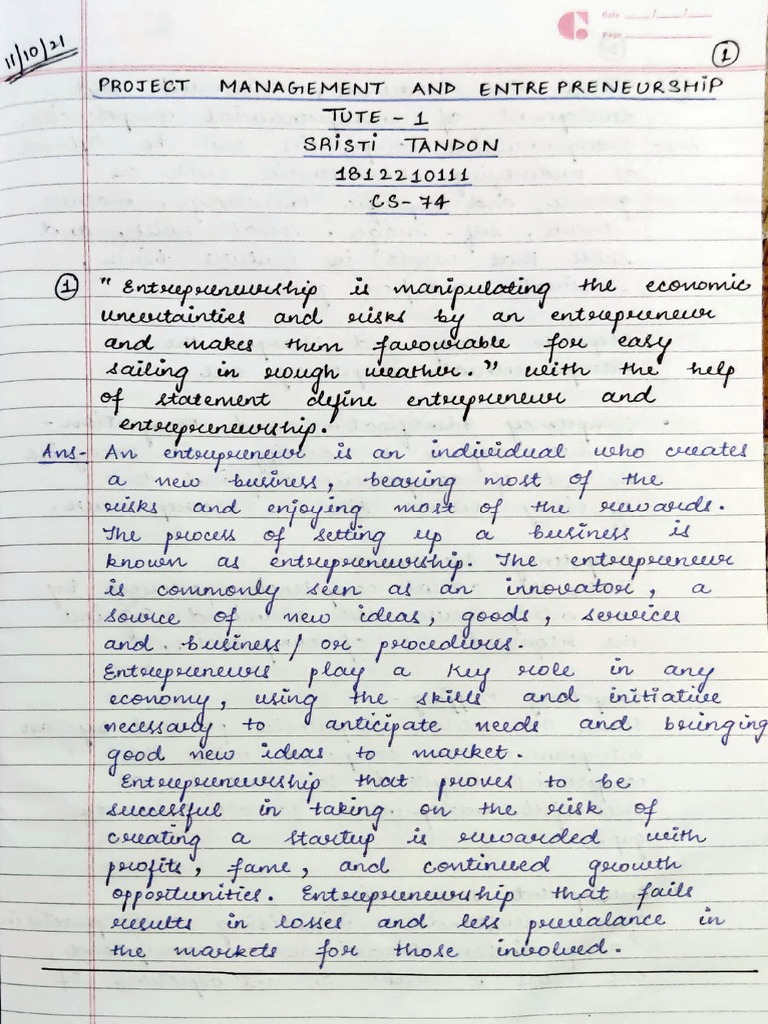 11/10/21
Date __/__/__
Page
1
PROJECT MANAGEMENT AND ENTREPRENEURSHIP
TUTE - 1
SRISTI TANDON
1812210111
CS-74
1 "Entrepreneurship is manipulating the economic
uncertainties and risks by an entrepreneur
and makes them favourable for easy
sailing in rough weather." With the help
of statement define entrepreneur and
entrepreneurship.
Ans- An entrepreneur is an individual who creates
a new business, bearing most of the
risks and enjoying most of the rewards.
The process of setting up a business is
known as entrepreneurship. The entrepreneur
is commonly seen as an innovator, a
source of new ideas, goods, services
and business/ or procedures.
Entrepreneurs play a key role in any
economy, using the skills and initiative
necessary to anticipate needs and bringing
good new ideas to market.
Entrepreneurship that proves to be
successful in taking on the risk of
creating a startup is rewarded with
profits, fame, and continued growth
opportunities. Entrepreneurship that fails
results in losses and less prevalance in
the markets for those involved.